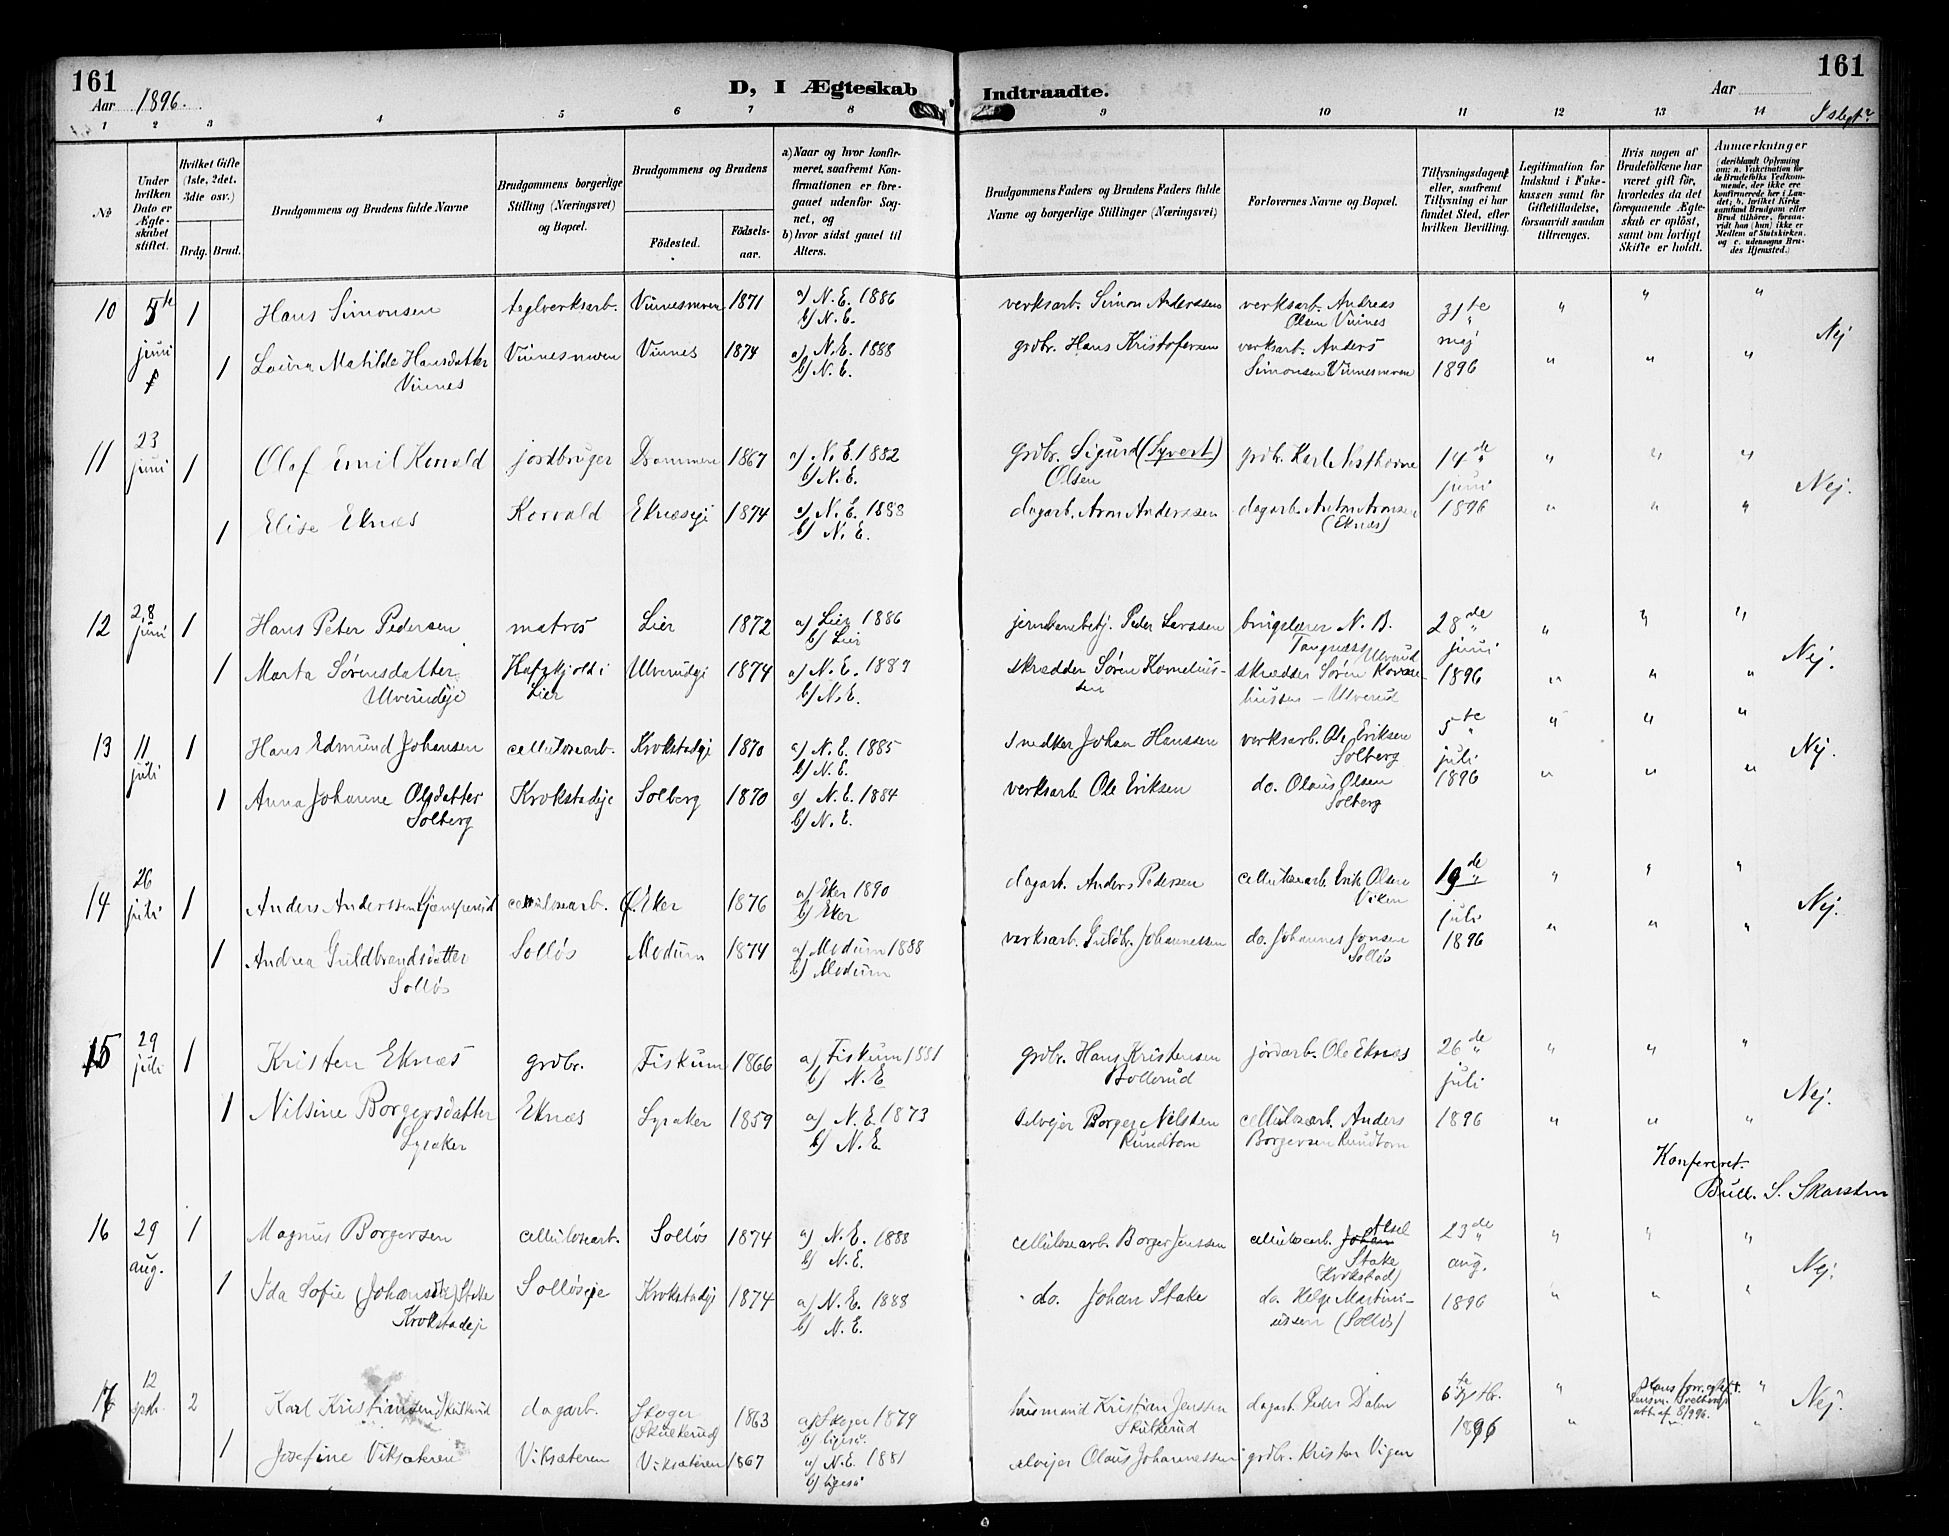 161
Aar 1896.
D, I Ægteskab
Indtraadte.
Aar
161
1 2 3 4 5 6 7 8 9 10 11 12 13 14 I slegt?
No
Under hvilken Dato er Ægteskabet stiftet.
Hvilket Gifte (1ste, 2det, 3die osv.)
Brdg. Brud.
Brudgommens og Brudens fulde Navne
Brudgommens borgerlige Stilling (Næringsvei) og Bopæl.
Brudgommens og Brudens
Födested.
Födselsaar.
a) Naar og hvor konfirmeret, saafremt Konfirmationen er foregaaet udenfor Sognet, og
b) hvor sidst gaaet til Alters.
Brudgommens Faders og Brudens Faders fulde Navne og borgerlige Stillinger (Næringsvei)
Forlovernes Navne og Bopæl.
Tillysningsdagene eller, saafremt Tillysning ei har fundet Sted, efter hvilken Bevilling.
Legitimation for Indskud i Enkekassen samt for Giftetilladelse, forsaavidt saadan tiltrænges.
Hvis nogen af Brudefolkene har været gift för, hvorledes da det foregaaende Ægteskab er oplöst, samt om lovligt Skifte er holdt.
Anmærkninger
10 5te juni 1 Hans Simonsen teglverksarb. Vinnesmoen 1871 a) N. E. 1886 b) N. E. verksarb. Simon Anderssen verksarb. Andreas Olsen Vinnes 31te maj 1896 " " "
1 Laura Matilde Hansdatter Vinnes Vinnesmoen Vinnes 1874 a) N. E. 1888 b) N. E. grdbr. Hans Kristofersen verksarb. Anders Simonsen Vinnesmoen " " " Nej
11 23 juni 1 Olaf Emil Korvald jordbruger Drammen 1867 a) N. E. 1882 b) N. E. grdbr. Sigurd (Syvert) Olsen grdbr. Karl Vesthovne 14de juni 1896 " " "
1 Elise Eknæs Korvald Eknæseje 1874 a) N. E. 1888 b) N. E. dagarb. Aron Anderssen dagarb. Anton Aronsen (Eknæs) " " " Nej.
12 28 juni 1 Hans Peter Pedersen matros Lier 1872 a) Lier 1886 b) Lier Peder Larssen N. B. Tangnæss Ulverud 28de juni 1896 " " "
1 Marta Sørensdatter Ulverudeje i Lier Ulverudeje 1874 a) N. E. 1889 b) N. E. skrædder Søren Korneliussen skrædder Søren Ulverud " " " Nej.
13 11 juli 1 Hans Edmund Johansen cellulosearb. Krokstadeje 1870 a) N. E. 1885 b) N. E. Snedker Johan Hanssen verksarb. Ole Eriksen Solberg 5te juli 1896 " " "
1 Anna Johanne Olsdatter Solberg Krokstadeje Solberg 1870 a) N. E. 1884 b) N. E. verksarb. Ole Eriksen do. Olaus Olsen Solberg " " " Nej.
14 26 juli 1 Anders Anderssen cellulosearb. Ø. Eker 1876 a) Eker 1890 b) Eker dagarb. Anders Pedersen cellulosearb. Erik Olsen Viken 19de juli 1896 " " "
1 Andrea Guldbrandsdatter Solløs Solløs Modum 1874 a) Modum 1888 b) Modum verksarb. Guldbr. Johannessen do. Johannes Jonsen Solløs " " " Nej.
15 29 juli 1 Kristen Eknæs grdbr. Fiskum 1866 a) Fiskum 1881 b) N. E grdbr. Hans Kristensen Bollerud jordarb. Ole Eknæs 26de juli 1896 " " "
1 Nilsine Borgersdatter Lyraker Eknæs Lyraker 1859 a) N. E. 1873 b) N. E. selvejer Borger Nilssen Rundtom cellulosearb. Anders Borgersen Rundtom " " " Nej.
Konfereret.
Bull. S. Skarsten
16 29 aug. 1 Magnus Borgersen cellulosearb. Solløs 1874 a) N. E. 1888 b) N. E. cellulosearb. Borger Jenssen cellulosearb. Johan Aksel Stake (Krokstad) 23de aug. 1896 " " "
1 Ida Sofie (Johansdtr) Stake Krokstadeje Solløseje Krokstadeje 1874 a) N. E. 1888 b) N. E. do. Johan Stake do. Helge Martiniussen (Solløs) " " " Nej.
17 12 sptbr. 2 Karl Kristiansen Skulkerud dagarb. Skoger (Skulkerud) 1863 a) Skoger 1879 b) ligeså. husmand Kristian Jenssen Skulkerud dagarb. Peder Dalen 6te sptbr. 1896 " "
1 Josefine Viksæteren Viksæteren Viksæteren 1867 a) N. E. 1881 b) ligeså selvejer Olaus Johannessen grdbr. Kristen Vigen " " Nej.